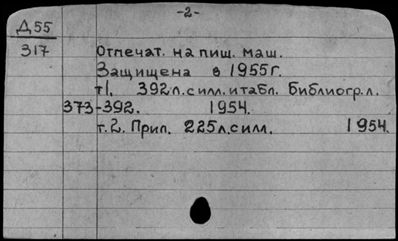 -2-
Д55
317
Отпечат. на пиш. маш.
Защищена в 1955г.
т1. 392л.с илл. и табл. Библиогр. л.
373-392. 1954.
т.2. Прил. 225л.с илл. 1954.